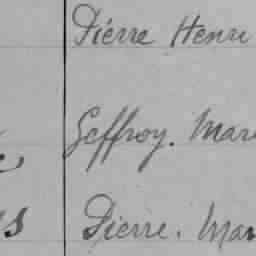 Piérre Henri
Geffroy. Mar
s Pierre. Mar